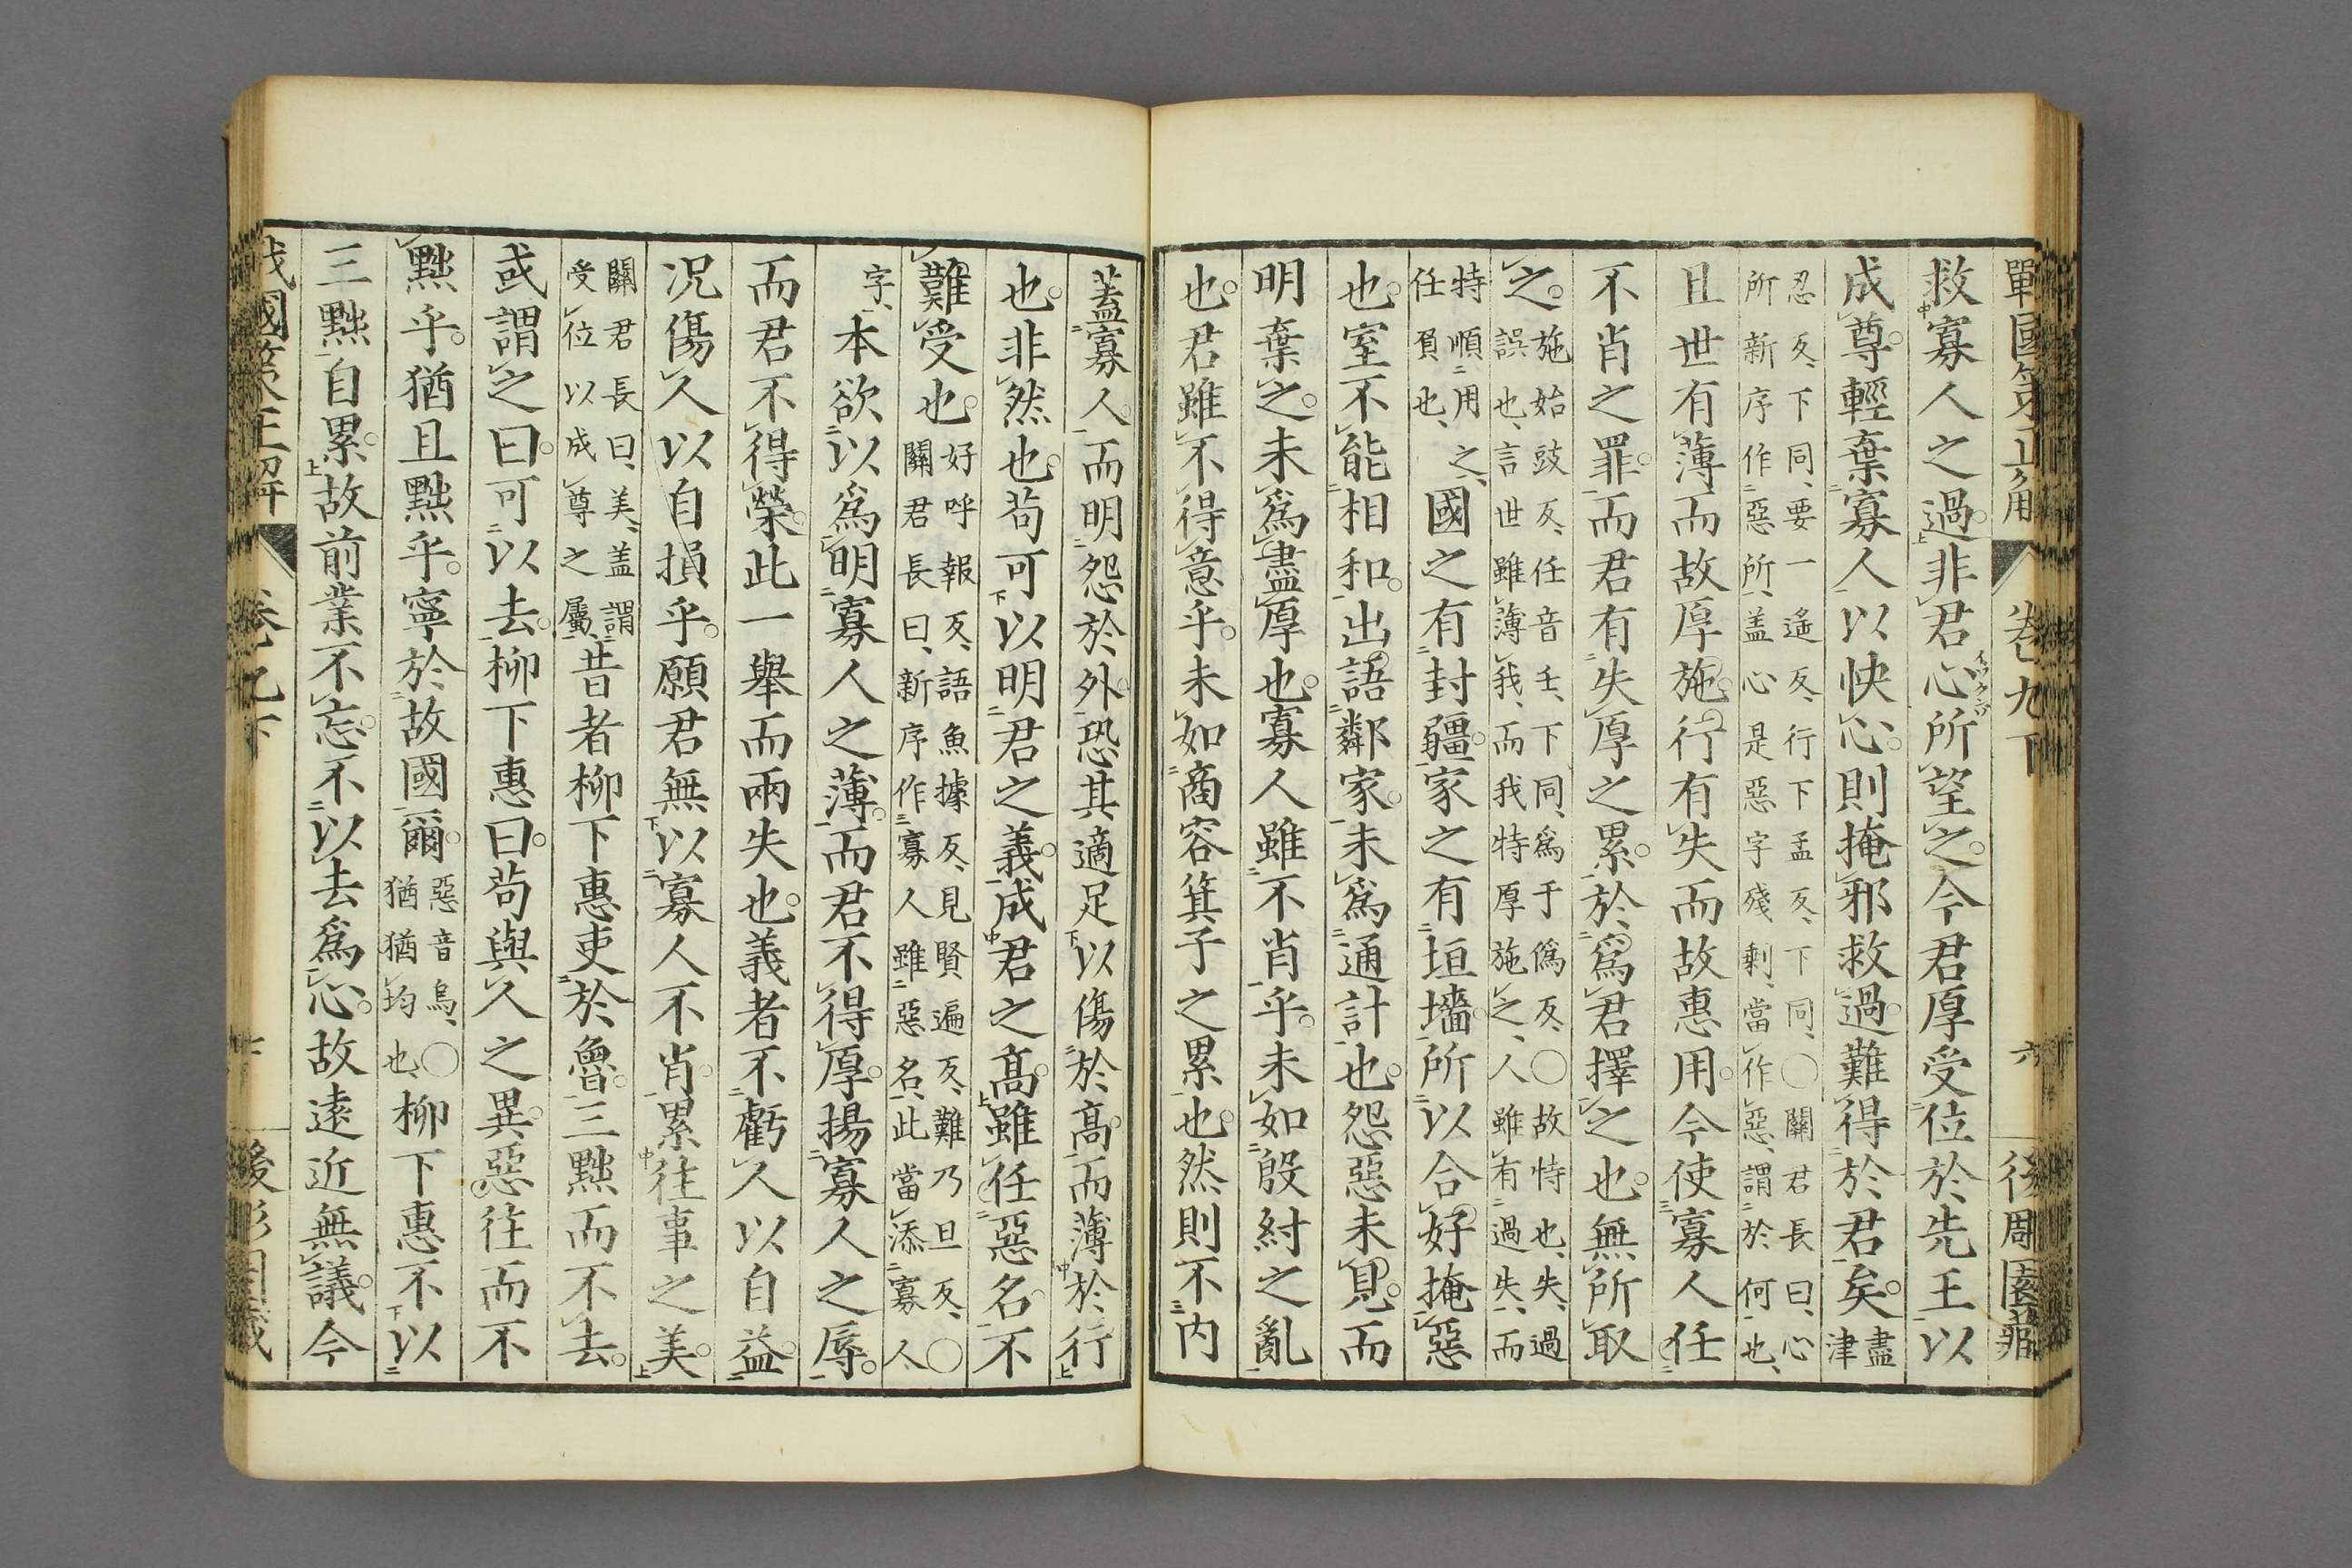 戰國策正解 卷九下 六 後周園藏
救寡人之過。非君心所望之。今君厚受位於先王以
成尊。輕棄寡人以快心。則掩邪救過。難得於君矣。盡津
忍反、下同、要一遙反、行下孟反、下同、〇關君長曰、心
所新序作惡所、盖心是惡字殘剩、當作惡、謂於何也、
且世有薄而故厚施。行有失而故惠用。今使寡人任
不肖之罪。而君有失厚之累。於爲君擇之也。無所取
之。
施始豉反、任音壬、下同、爲于僞反、〇故恃也、失、過
誤也、言世雖薄我、而我特厚施之、人雖有過失、而
特順用之、
任負也、
國之有封疆。家之有垣墻。所以合好掩惡
也。室不能相和。出語鄰家。未爲通計也。怨惡未見。而
明棄之。未爲盡厚也。寡人雖不肖乎。未如殷紂之亂
也。君雖不得意乎。未如商容箕子之累也。然則不内
蓋寡人。而明怨於外。恐其適足以傷於高。而薄於行
也。非然也。苟可以明君之義。成君之高。雖任惡名。不
難受也。
好呼報反、語魚據反、見賢遍反、難乃旦反、〇
關君長曰、新序作寡人雖惡名、此當添寡人
字、
本欲以爲明寡人之薄。而君不得厚。揚寡人之辱。
而君不得榮。此一舉而兩失也。義者不虧人以自益。
况傷人以自損乎。願君無以寡人不肖。累往事之美。
關君長曰、美、盖謂
受位以成尊之屬、
昔者柳下惠吏於魯。三黜而不去。
或謂之曰。可以去。柳下惠曰。苟與人之異。惡往而不
黜乎。猶且黜乎。寧於故國爾。
惡音烏、〇
猶猶均也、
柳下惠不以
三黜自累。故前業不忘。不以去爲心。故遠近無議。今
戰國策正解 卷九下